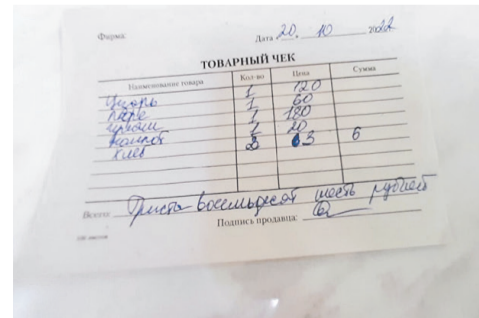 Фирма Дата 20. 10 2022
ТОВАРНЫЙ ЧЕК
Наименование товара Кол-во Цена Сумма
1 120
Пюре 1 60
1 180
Компот 1 20
Хлеб 2 3 6
Всего: Триста восемьдесят шесть рублей
Подпись продавца: